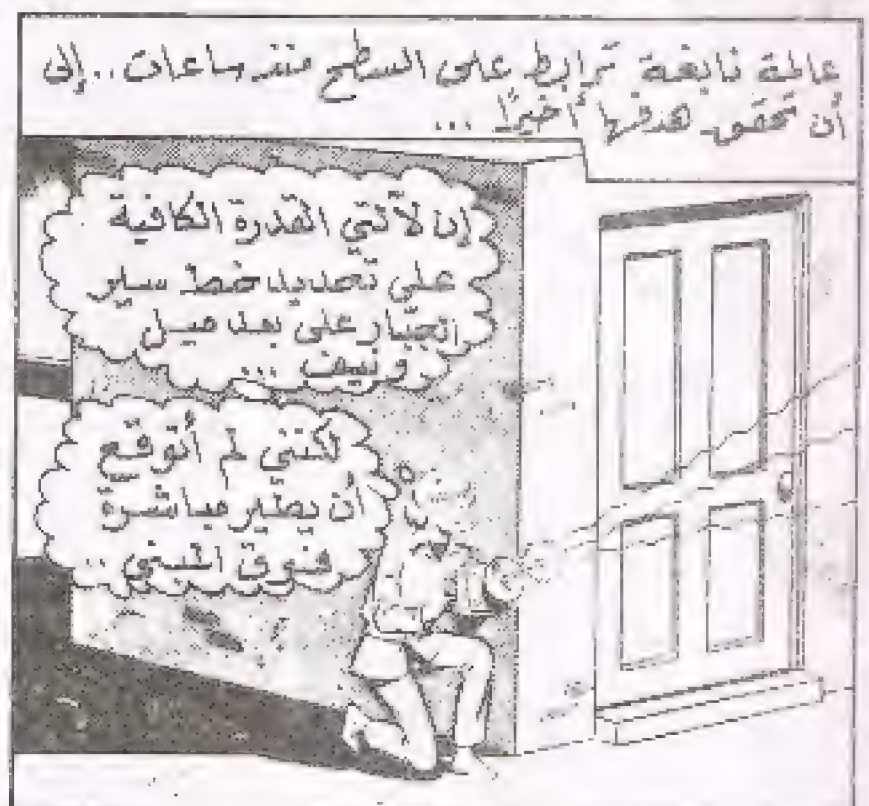 عالمة نابغة ترابط على السطح منذ ساعات..إلى
أن تحقق هدفها أخيرًا ...
إن لآلتي القدرة الكافية
على تحديد خط سير
الجبّار على بعد ميل
ونيف ...
لكنني لم أتوقع
أن يطير مباشرة
فوق المبنى ..